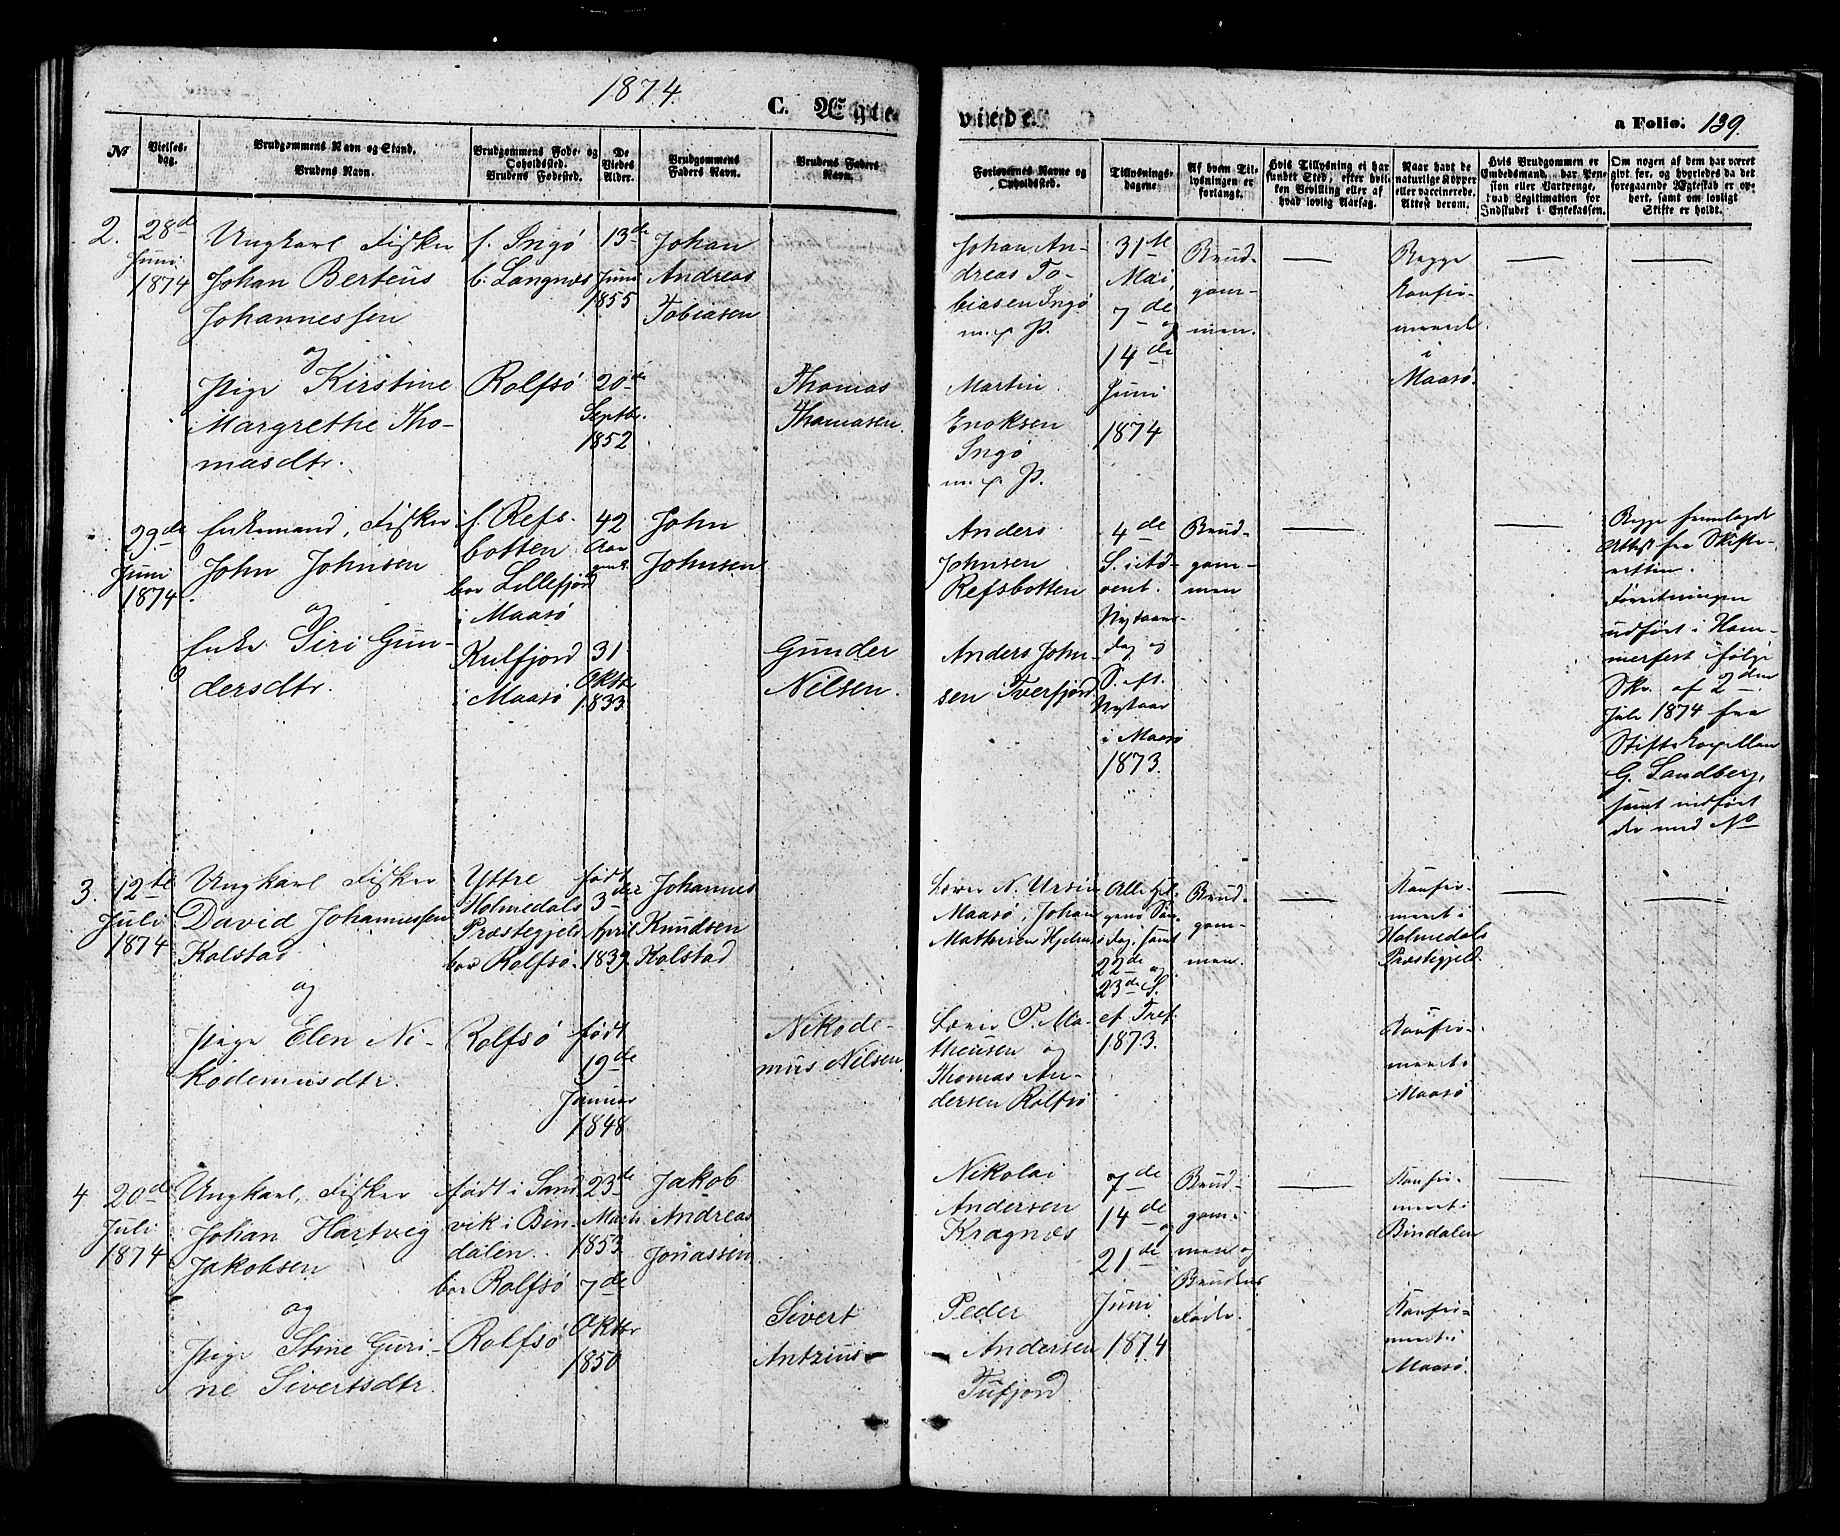 1874.
C. Ægte
viede.
a Folio. 139.
№
Vielses-
dag.
Brudgommens Navn og Stand.
Brudens Navn.
Brudgommens Føde- og
Opholdssted.
Brudens Fødested.
De
Viedes
Alder.
Brudgommens
Faders Navn.
Brudens Faders
Navn.
Forlovernes Navne og
Opholdssted.
Tillysnings-
dagene
Af hvem Til-
lysningen er
forlangt.
Hvis Tillysning ei har
fundet Sted, efter hvil-
ken Bevilling eller af
hvad lovlig Aarsag.
Naar havt de
naturlige Kopper
eller vaccinerede.
Attest derom.
Hvis Brudgommen er
Embedsmand, har Pen-
sion eller Vartpenge,
hvad Legitimation for
Indskudet i Enkekassen.
Om nogen af dem har været
givt før, og hvorledes da det
foregaaende Ægteskab er op-
hørt, samt om lovligt
Skifte er holdt.
2.
28de
Juni
1874
Ungkarl Fisker
Johan Berteus
Johannessen
og
Pige Kirstine
Margrethe Tho-
masdtr.
f. Ingø
b. Langnæs
Rolfsø
13de
Juni
1855
20de
Septbr.
1852
Johan
Andreas
Tobiasen
Thomas
Thomasen.
Johan An-
dreas To-
biasen Ingø
m. p. P.
Martin
Enoksen
Ingø
m. p. P.
31te
Mai,
7de
og
14de
Juni
1874
Brud-
gom-
men.
—
Begge
konfir-
merede
i
Maasø.
—
—
29de
Juni
1874
Enkemand, Fisker
John Johnsen
og
Enke Siri Gun-
dersdtr.
f. Refs-
botten
bor Lillefjord
i Maasø
Kulfjord
i Maasø
42
Aar
gml.
31
Oktbr
1833
John
Johnsen
Gunder
Nilsen.
Anders
Johnsen
Refsbotten
Anders John-
sen Tverfjord
4de
S. i Ad-
vent.
Nytaars-
dag og
S. eft.
Nytaar
i Maasø
1873.
Brud-
gom-
men
—
—
Begge fremlagdt
Attest fra Skifte-
retten.
Forretningen
udført i Ham-
merfest ifølge
Skr. af 2den
Juli 1874 fra
Stiftskapellan
G. Sandberg,
samt indført
der med No
3.
12te
Juli
1874
Ungkarl Fisker
David Johannessen
Kolstad
og
Pige Elen Ni-
kodemusdtr.
Yttre
Holmedals
Præstegjeld
bor Rolfsø.
Rolfsø
født
3die
April
1839
født
19de
Januar
1848
Johannes
Knudsen
Kolstad
Nikode-
mus Nilsen.
N. Ursin
Maasø, Johan
Mathisen Hjelmsø
P. Ma-
theusen og
Thomas An-
dersen Rolfsø
Alle Hel-
gens Søn-
dag, samt
22de og
23de S.
ef. Tref.
1873.
Brud-
gom-
men.
—
Konfir-
meret i
Holmedals
Præstegjeld.
Konfir-
meret i
Maasø
—
—
4
20de
Juli
1874
Ungkarl, Fisker
Johan Hartvig
Jakobsen
og
Pige Stine Guri-
ne Sivertsdtr.
født i Sand-
vik i Bin-
dalen.
bor Rolfsø
Rolfsø
23de
Marts
1853
7de
Oktbr
1850
Jakob
Andreas
Jonassen
Sivert
Antzius
Nikolai
Andersen
Kragnæs
Peder
Andersen
Tufjord
7de
14de
og
21de
Juni
1874
Brud-
gom-
men og
Brudens
Fader.
—
Konfir-
meret i
Bindalen
Konfir-
meret i
Maasø.
—
—